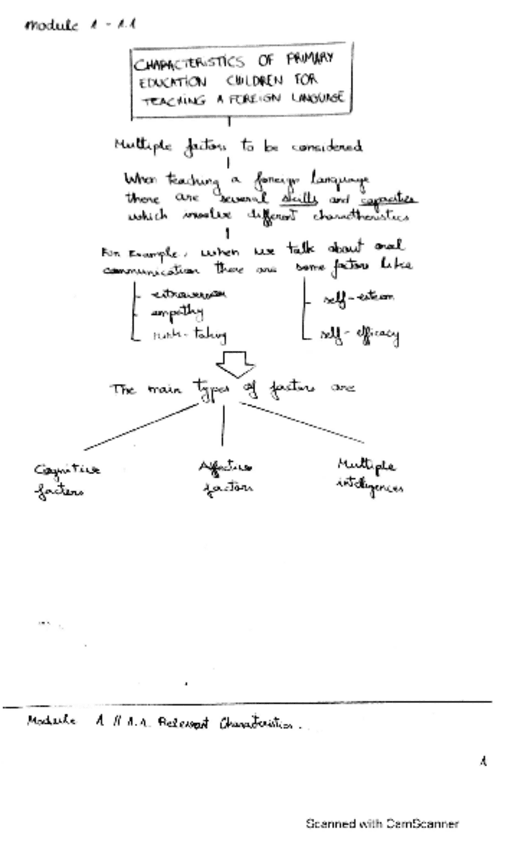 Module 1 - 1.1
CHARACTERISTICS OF PRIMARY
EDUCATION CHILDREN FOR
TEACHING A FOREIGN LANGUAGE
Multiple factors to be considered
When teaching a foreign language
there are several skills and capacities
which involve different charactheristics
For Example, when we talk about oral
communication there are some factors like
- extraversion
- empathy
- risk-taking
- self-esteem
- self-efficacy
The main types of factors are
Cognitive
factors
Affective
factors
Multiple
inteligences
Module 1 // 1.1. Relevant Characteristics.
1
Scanned with CamScanner